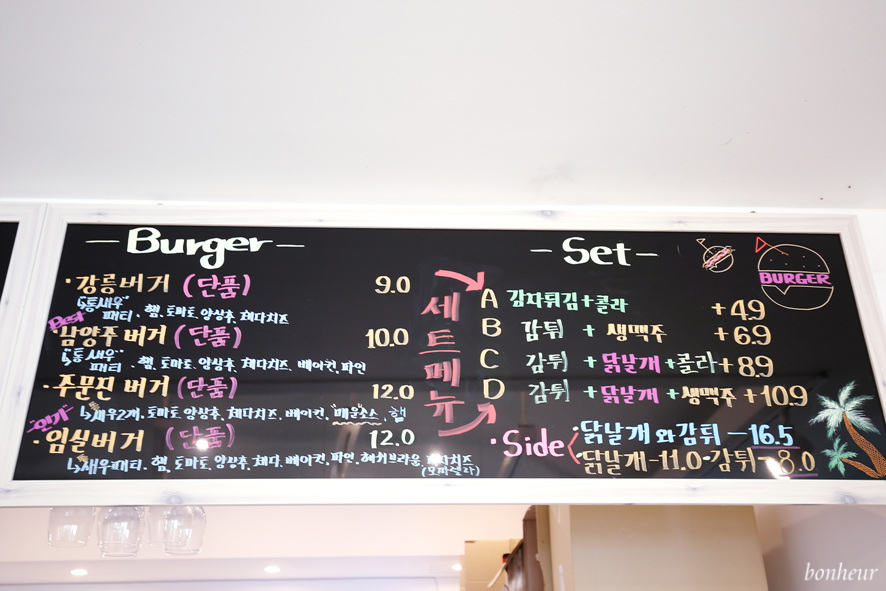 - Burger -
· 강릉버거 (단품) 9.0
↳"통새우"
패티, 햄, 토마토, 양상추, 체다치즈
Best
· 남양주 버거 (단품) 10.0
↳"통새우"
패티, 햄, 토마토, 양상추, 체다치즈, 베이컨, 파인
· 주문진 버거 (단품) 12.0
↳새우2개, 토마토, 양상추, 체다치즈, 베이컨, "매운소스", 햄
인기
· 임실버거 (단품) 12.0
↳새우패티, 햄, 토마토, 양상추, 체다, 베이컨, 파인, 해쉬브라운, 치즈
(모짜렐라)
세트메뉴
- Set -
A 감자튀김+콜라 +4.9
B 감튀 + 생맥주 +6.9
C 감튀 + 닭날개 +콜라+8.9
D 감튀 + 닭날개 +생맥주+10.9
· Side
· 닭날개 와감튀 -16.5
· 닭날개-11.0·감튀-8.0
BURGER
bonheur